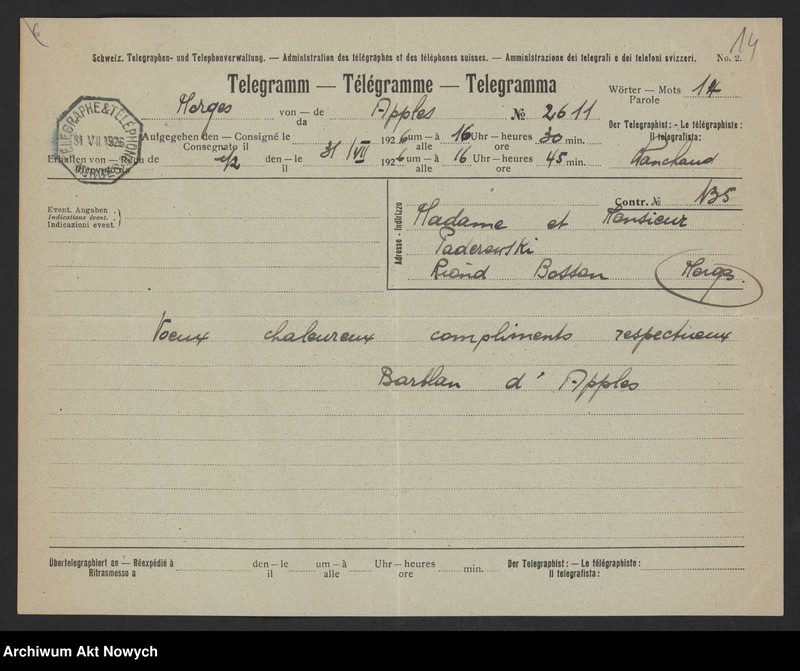 14
Schweiz. Telegraphen- und Telephonverwaltung. — Administration des télégraphes et des téléphones suisses. — Amministrazione dei telegrafi e dei telefoni svizzeri. No. 2.
Telegramm — Télégramme — Telegramma
Wörter — Mots 14
Parole
Morges von — de Apples № 2611
da
Der Telegraphist: - Le télégraphiste:
Il telegrafista:
Aufgegeben den — Consigné le 31/VII 1926 um — à 16 Uhr — heures 30 min.
Consegnato il alle ore
Erhalten von — Reçu de den — le 1926 um — à 16 Uhr — heures 45 min.
Ricevuto da il alle ore
TELEGRAPHE & TELEPHONE
31 VII 1926
MORGES
Event. Angaben
Indications évent.
Indicazioni event.
Adresse - Indirizzo
Contr. №
Madame et Monsieur
Paderewski
Riond Bosson Morges.
Voeux chaleureux compliments respectueux
Barblan d'Apples
Übertelegraphiert an — Réexpédié à den — le um — à Uhr — heures min. Der Telegraphist: — Le télégraphiste:
Ritrasmesso a il alle ore Il telegrafista:
Archiwum Akt Nowych